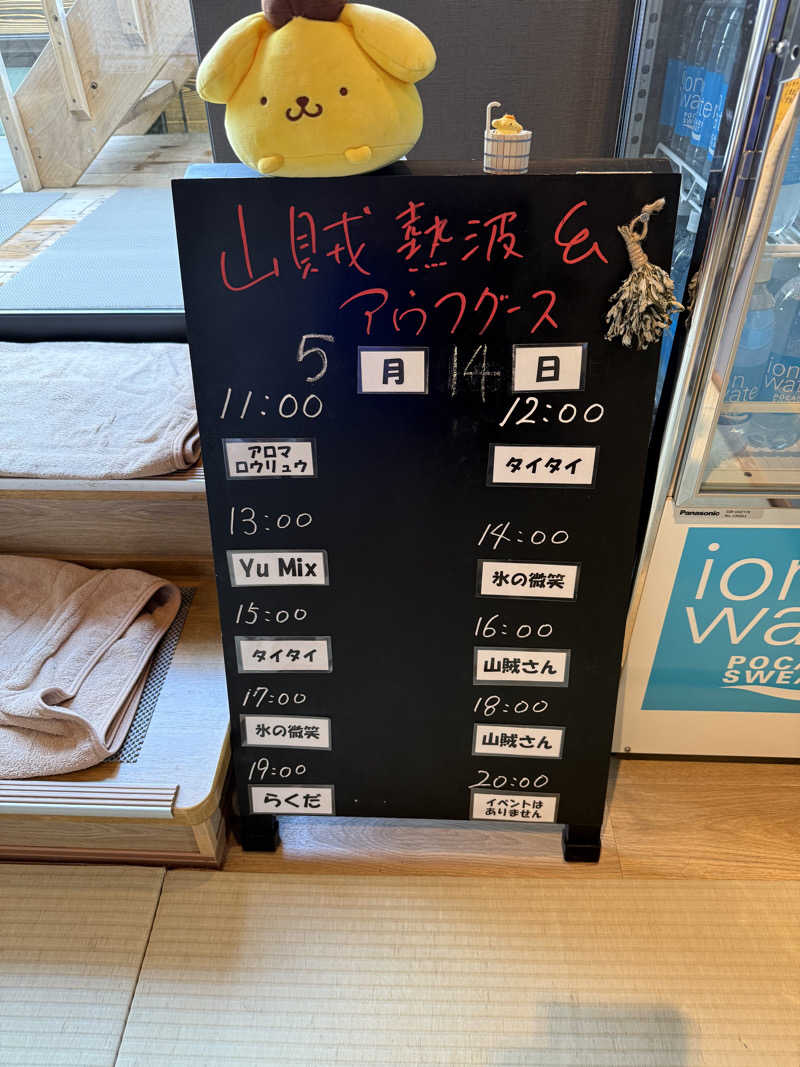 山賊 熱波 &
アウフグース
5 月 14 日
11:00 12:00
アロマ
ロウリュウ
タイタイ
13:00 14:00
Yu Mix 氷の微笑
15:00 16:00
タイタイ 山賊さん
17:00 18:00
氷の微笑 山賊さん
19:00 20:00
らくだ
イベントは
ありません
ion
water
POCARI
ion
water
Panasonic
ion
wate
POCA
SWEA